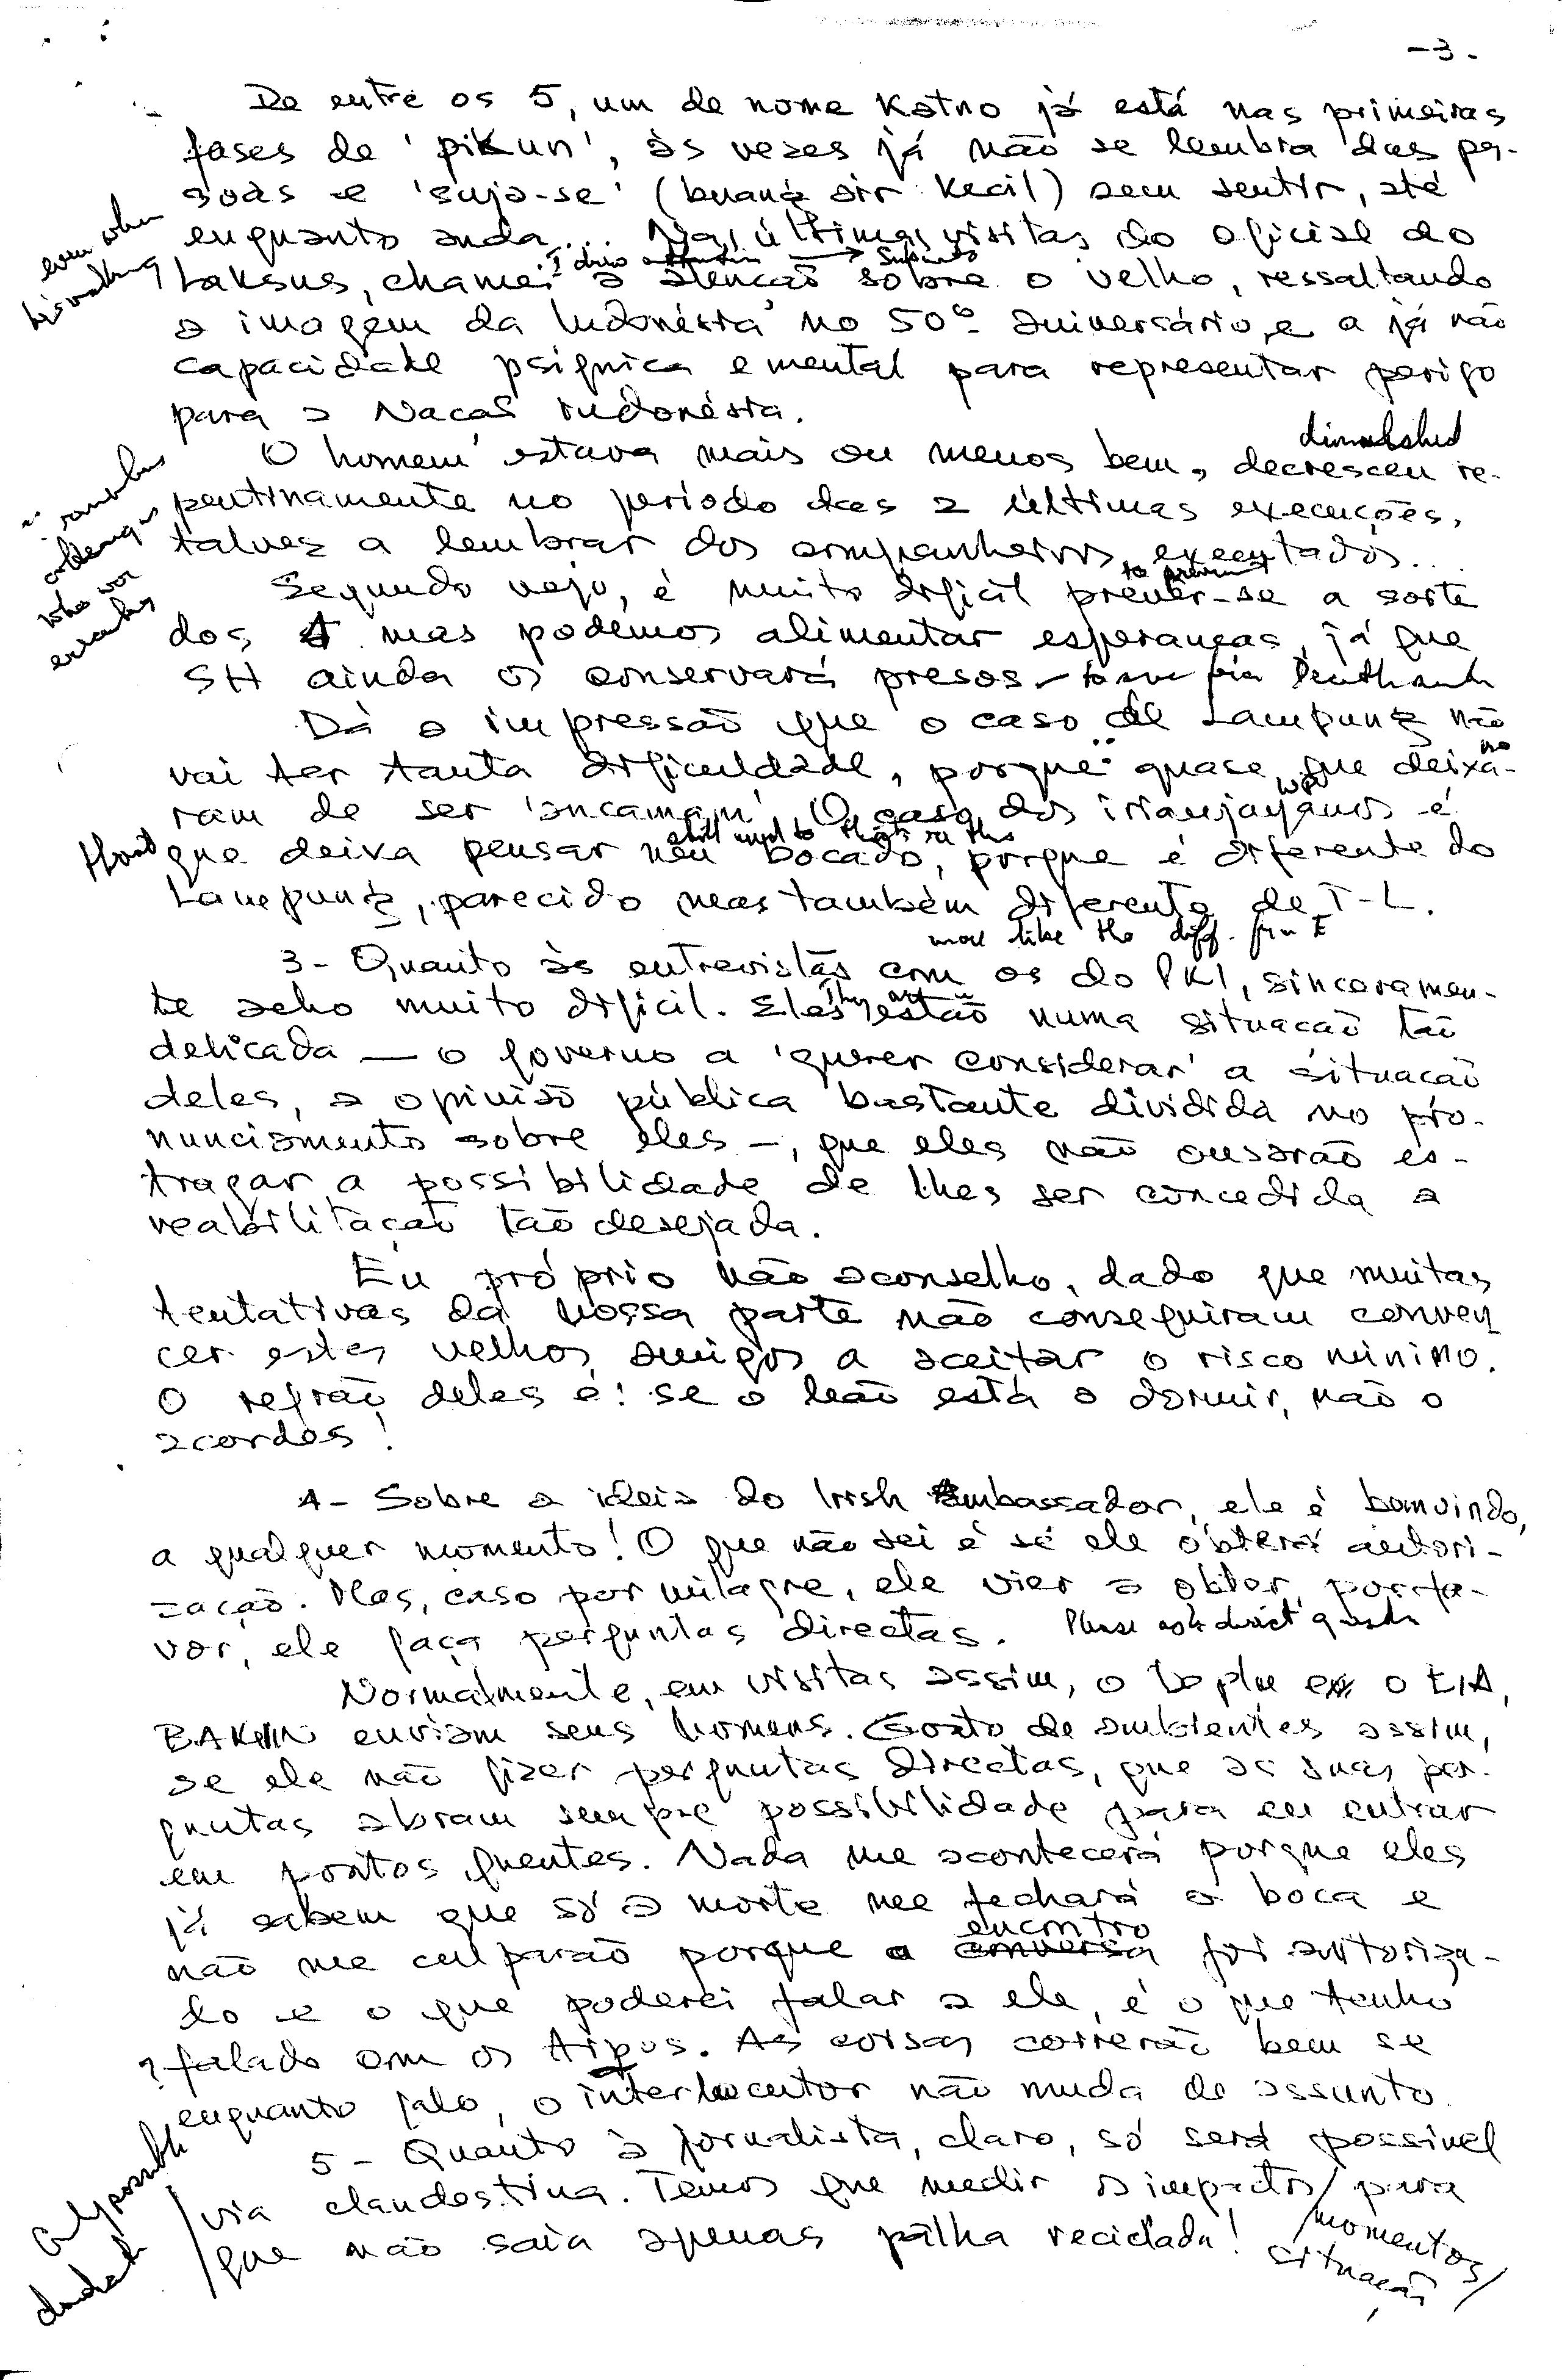 -3-
De entre os 5, um de nome Katno já está nas primeiras
fases de 'pikun', às vezes já não se lembra das pes-
soas e 'suja-se' (buang air kecil) sem sentir, até
enquanto anda... Nas últimas visitas do oficial do
even when
he's walking
I drew attention
Laksus, chamei a atenção sobre o velho, ressaltando
a imagem da Indonésia no 50º aniversário e a já não
capacidade psíquica e mental para representar perigo
para a Nação Indonésia.
diminished
O homem estava mais ou menos bem, decresceu re-
pentinamente no período das 2 últimas execuções,
talvez a lembrar dos companheiros executados...
who were
executed
to prevent
Segundo vejo, é muito difícil prever-se a sorte
dos 4 mas podemos alimentar esperanças, já que
SH ainda os conservará presos
Dá a impressão que o caso de Lampung não
vai ter tanta dificuldade, porque quase que deixa-
ram de ser 'ancaman'. O caso dos irianjayanos é
still need to think on this
que deixa pensar um bocado, porque é diferente do
Lampung, parecido mas também diferente de T-L.
more like the diff. from E
3- Quanto às entrevistas com os do PKI, sinceramen-
te acho muito difícil. Eles estão numa situação tão
They are in
delicada — o governo a 'querer considerar' a situação
deles, a opinião pública bastante dividida no pro-
nunciamento sobre eles -, que eles não ousarão es-
tragar a possibilidade de lhes ser concedida a
reabilitação tão desejada.
Eu próprio não aconselho, dado que muitas
tentativas da nossa parte não conseguiram conven
cer estes velhos amigos a aceitar o risco mínimo.
O refrão deles é: se o leão está a dormir, não o
acordes!
4- Sobre a ideia do Irish Ambassador, ele é bomvindo,
a qualquer momento! O que não sei é se ele obterá autori-
zação. Mas, caso por milagre, ele vier a obter, por fa-
vor, ele faça perguntas directas. Please ask direct questns
Normalmente, em visitas assim, o Deplu e o BIA,
BAKIN enviam seus homens. Gosto de ambientes assim,
se ele não fizer perguntas directas, que as suas per-
guntas abram sempre possibilidade para eu entrar
em pontos quentes. Nada me acontecerá porque eles
já sabem que só a morte me fechará a boca e
encontro
não me culparão porque o conversa foi autoriza-
do e o que poderei falar a ele, é o que tenho
? falado com os Aipus. As coisas correrão bem se
enquanto falo, o interlocutor não muda de assunto.
5- Quanto à jornalista, claro, só será possível
only possible
via clandestina. Temos que medir os impactos/ para
/momentos/
situação
que não saia apenas palha reciclada!